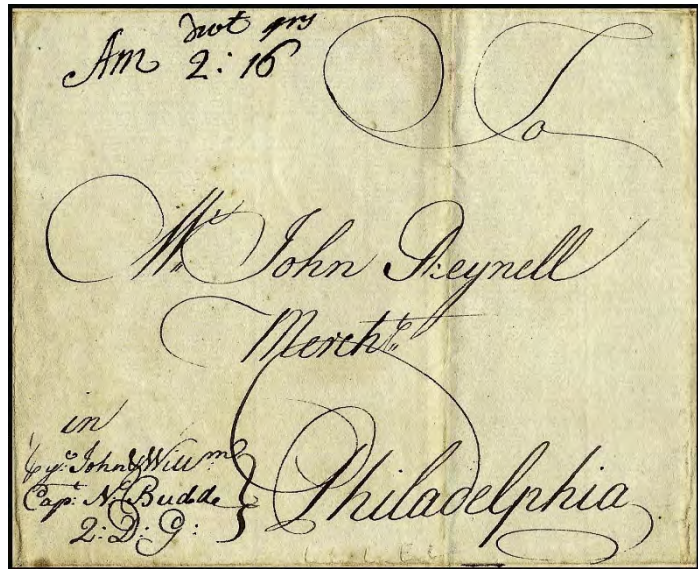 dwt grs
Am 2:16
To
Mr. John Reynell
Mercht.
in
Philadelphia
Pr. ye. John & Willm.
Capt. N. Budde
2:D:G: